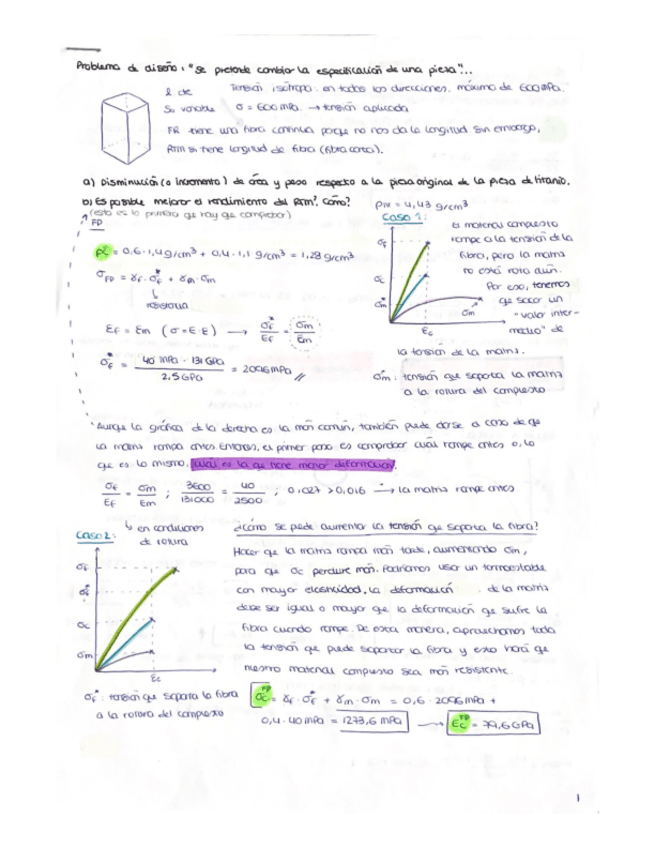 Problema de diseño: "se pretende cambiar la especificación de una pieza"...
l de
Su variable
Tensión isótropa: en todas las direcciones. máximo de 600 MPa.
σ = 600 MPa. → tensión aplicada
FP tiene una fibra continua porque no nos da la longitud sin embargo,
RTM si tiene longitud de fibra (fibra corta).
a) Disminución (o incremento) de área y peso respecto a la pieza original de la pieza de titanio.
b) Es posible mejorar el rendimiento del RTM? Cómo?
(esto es lo primero que hay que comprobar)
FP
ρc = 0,6·1,4 g/cm³ + 0,4·1,1 g/cm³ = 1,28 g/cm³
σFP = γf·σf* + γm·σm
resistencia
Ef = Em (σ = E·E) → σf*/Ef = σm/Em
σf* = 40 MPa · 131 GPa / 2,5 GPa = 2096 MPa //
ρTW = 4,43 g/cm³
Caso 1:
σf
σm*
σm
Ec
El material compuesto
rompe a la tensión de la
fibra, pero la matriz
no está rota aún.
Por eso, tenemos
que sacar un
"valor inter-
medio" de
la tensión de la matriz.
σm*: tensión que soporta la matriz
a la rotura del compuesto
Aunque la gráfica de la derecha es la más común, también puede darse el caso de que
la matriz rompa antes. Entonces, el primer paso es comprobar cuál rompe antes o, lo
que es lo mismo, cuál es la que tiene menor deformación.
σf/Ef = σm/Em ; 3600/131000 = 40/2500 ; 0,027 > 0,016 → la matriz rompe antes
en condiciones
de rotura
Caso 2:
σf
σf*
σc
σm
Ec
σf*: tensión que soporta la fibra
a la rotura del compuesto
¿Cómo se puede aumentar la tensión que soporta la fibra?
Hacer que la matriz rompa más tarde, aumentando σm,
para que σc perdure más. Podríamos usar un termoestable
con mayor elasticidad, la deformación de la matriz
debe ser igual o mayor que la deformación que sufre la
fibra cuando rompe. De esta manera, aprovechamos toda
la tensión que puede soportar la fibra y esto hará que
mesmo material compuesto sea más resistente.
σc FP = γf·σf* + γm·σm = 0,6·2096 MPa +
0,4·40 MPa = 1273,6 MPa → Ec FP = 79,6 GPa
1